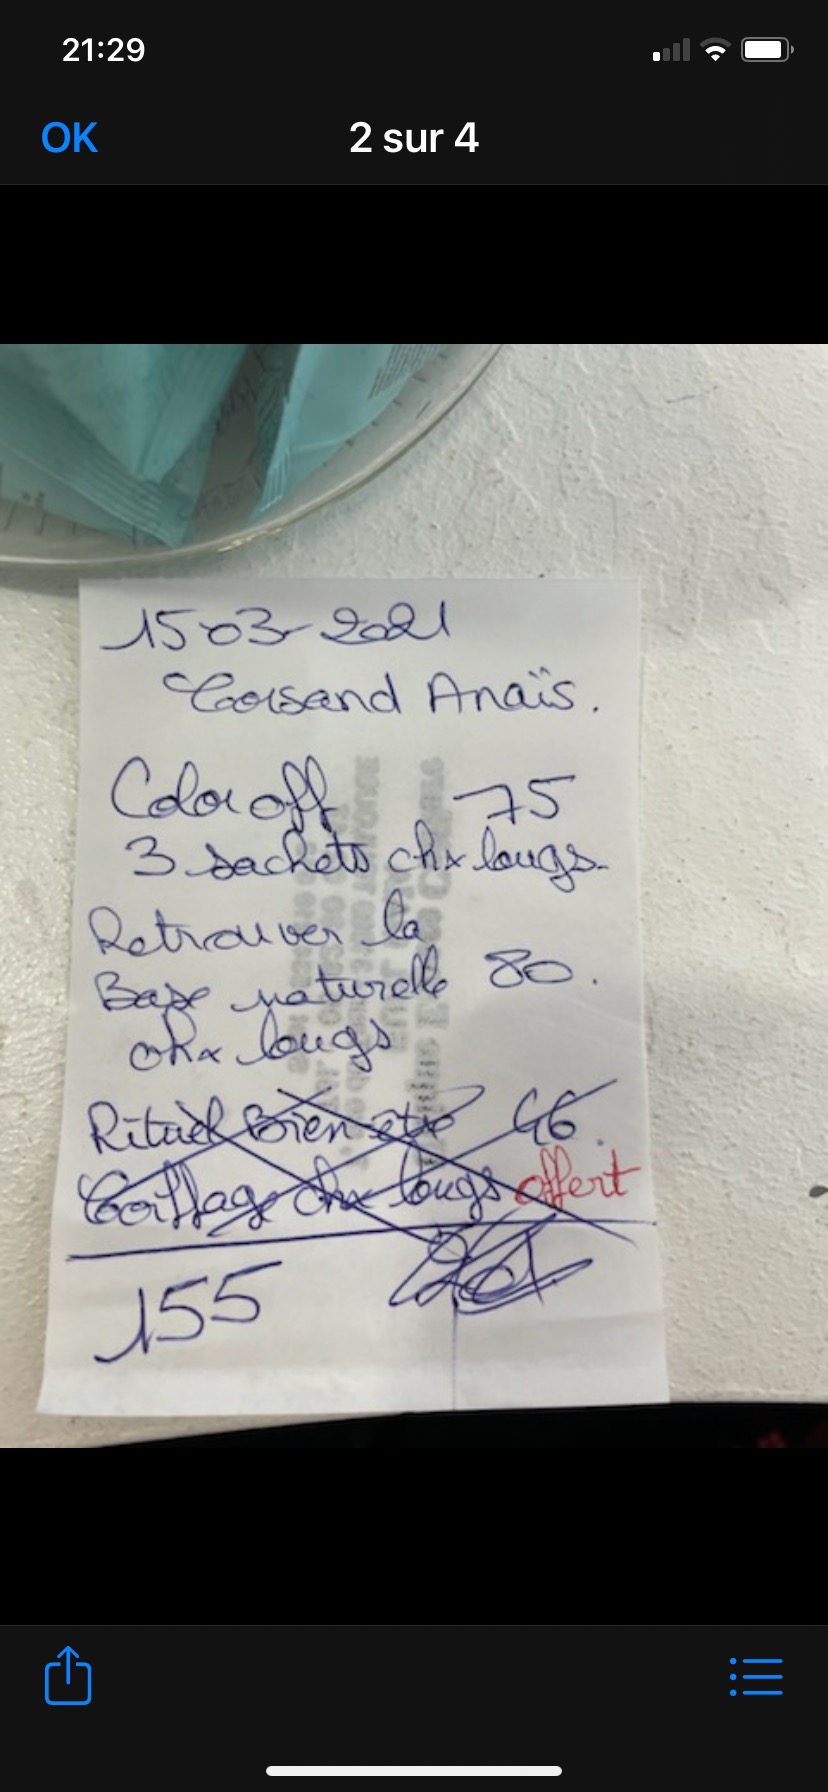 21:29
OK
2 sur 4
15-03-2021
Corsand Anaïs.
Color off 75
3 sachets chx longs
Retrouver la
Base naturelle 80.
chx longs
Rituel Bien-être 46.
Coiffage chx longs offert
155